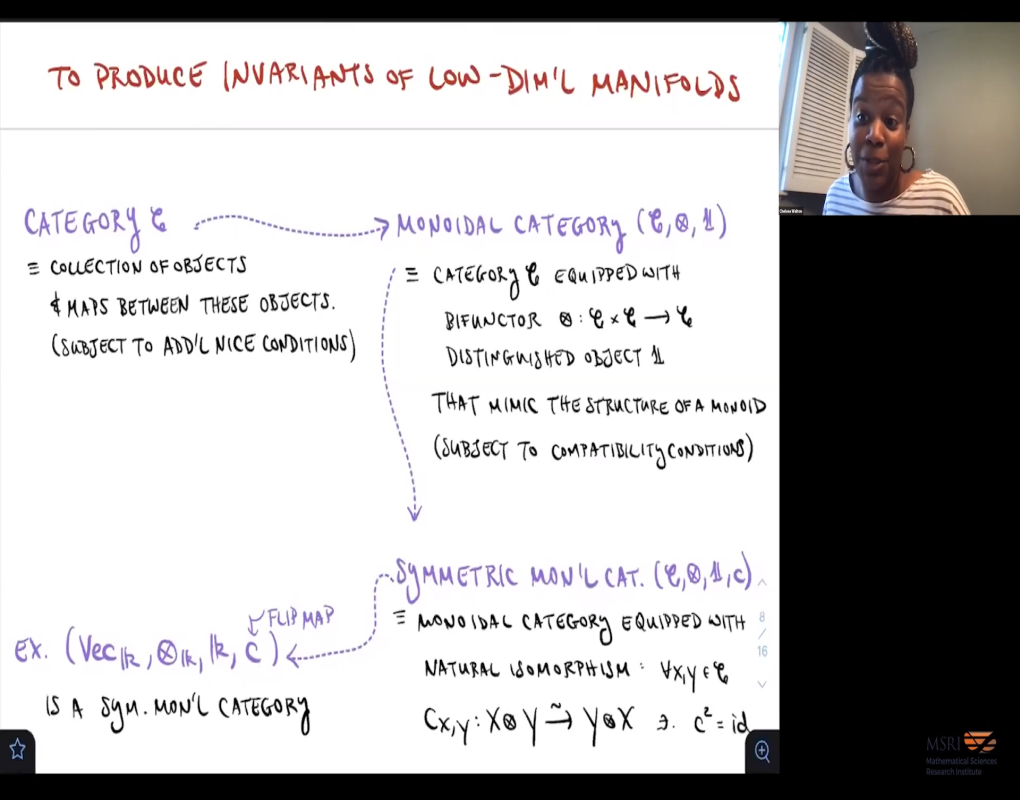 TO PRODUCE INVARIANTS OF LOW-DIM'L MANIFOLDS
Chelsea Walton
CATEGORY 𝒞
≡ COLLECTION OF OBJECTS
& MAPS BETWEEN THESE OBJECTS.
(SUBJECT TO ADD'L NICE CONDITIONS)
MONOIDAL CATEGORY (𝒞, ⊗, 𝟙)
≡ CATEGORY 𝒞 EQUIPPED WITH
BIFUNCTOR ⊗ : 𝒞 × 𝒞 → 𝒞
DISTINGUISHED OBJECT 𝟙
THAT MIMIC THE STRUCTURE OF A MONOID
(SUBJECT TO COMPATIBILITY CONDITIONS)
SYMMETRIC MON'L CAT. (𝒞, ⊗, 𝟙, c)
≡ MONOIDAL CATEGORY EQUIPPED WITH
NATURAL ISOMORPHISM : ∀X,Y ∈ 𝒞
c_{X,Y} : X ⊗ Y ⥲ Y ⊗ X ∋. c² = id
FLIP MAP
EX. (Vec_𝕜, ⊗_𝕜, 𝕜, c)
IS A SYM. MON'L CATEGORY
8
/
16
MSRI
Mathematical Sciences
Research Institute